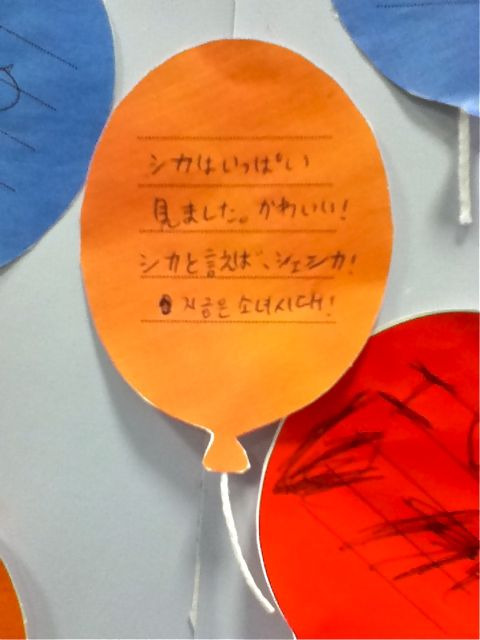 シカはいっぱい
見ました。かわいい!
シカと言えば、ジェシカ!
지금은 소녀시대!